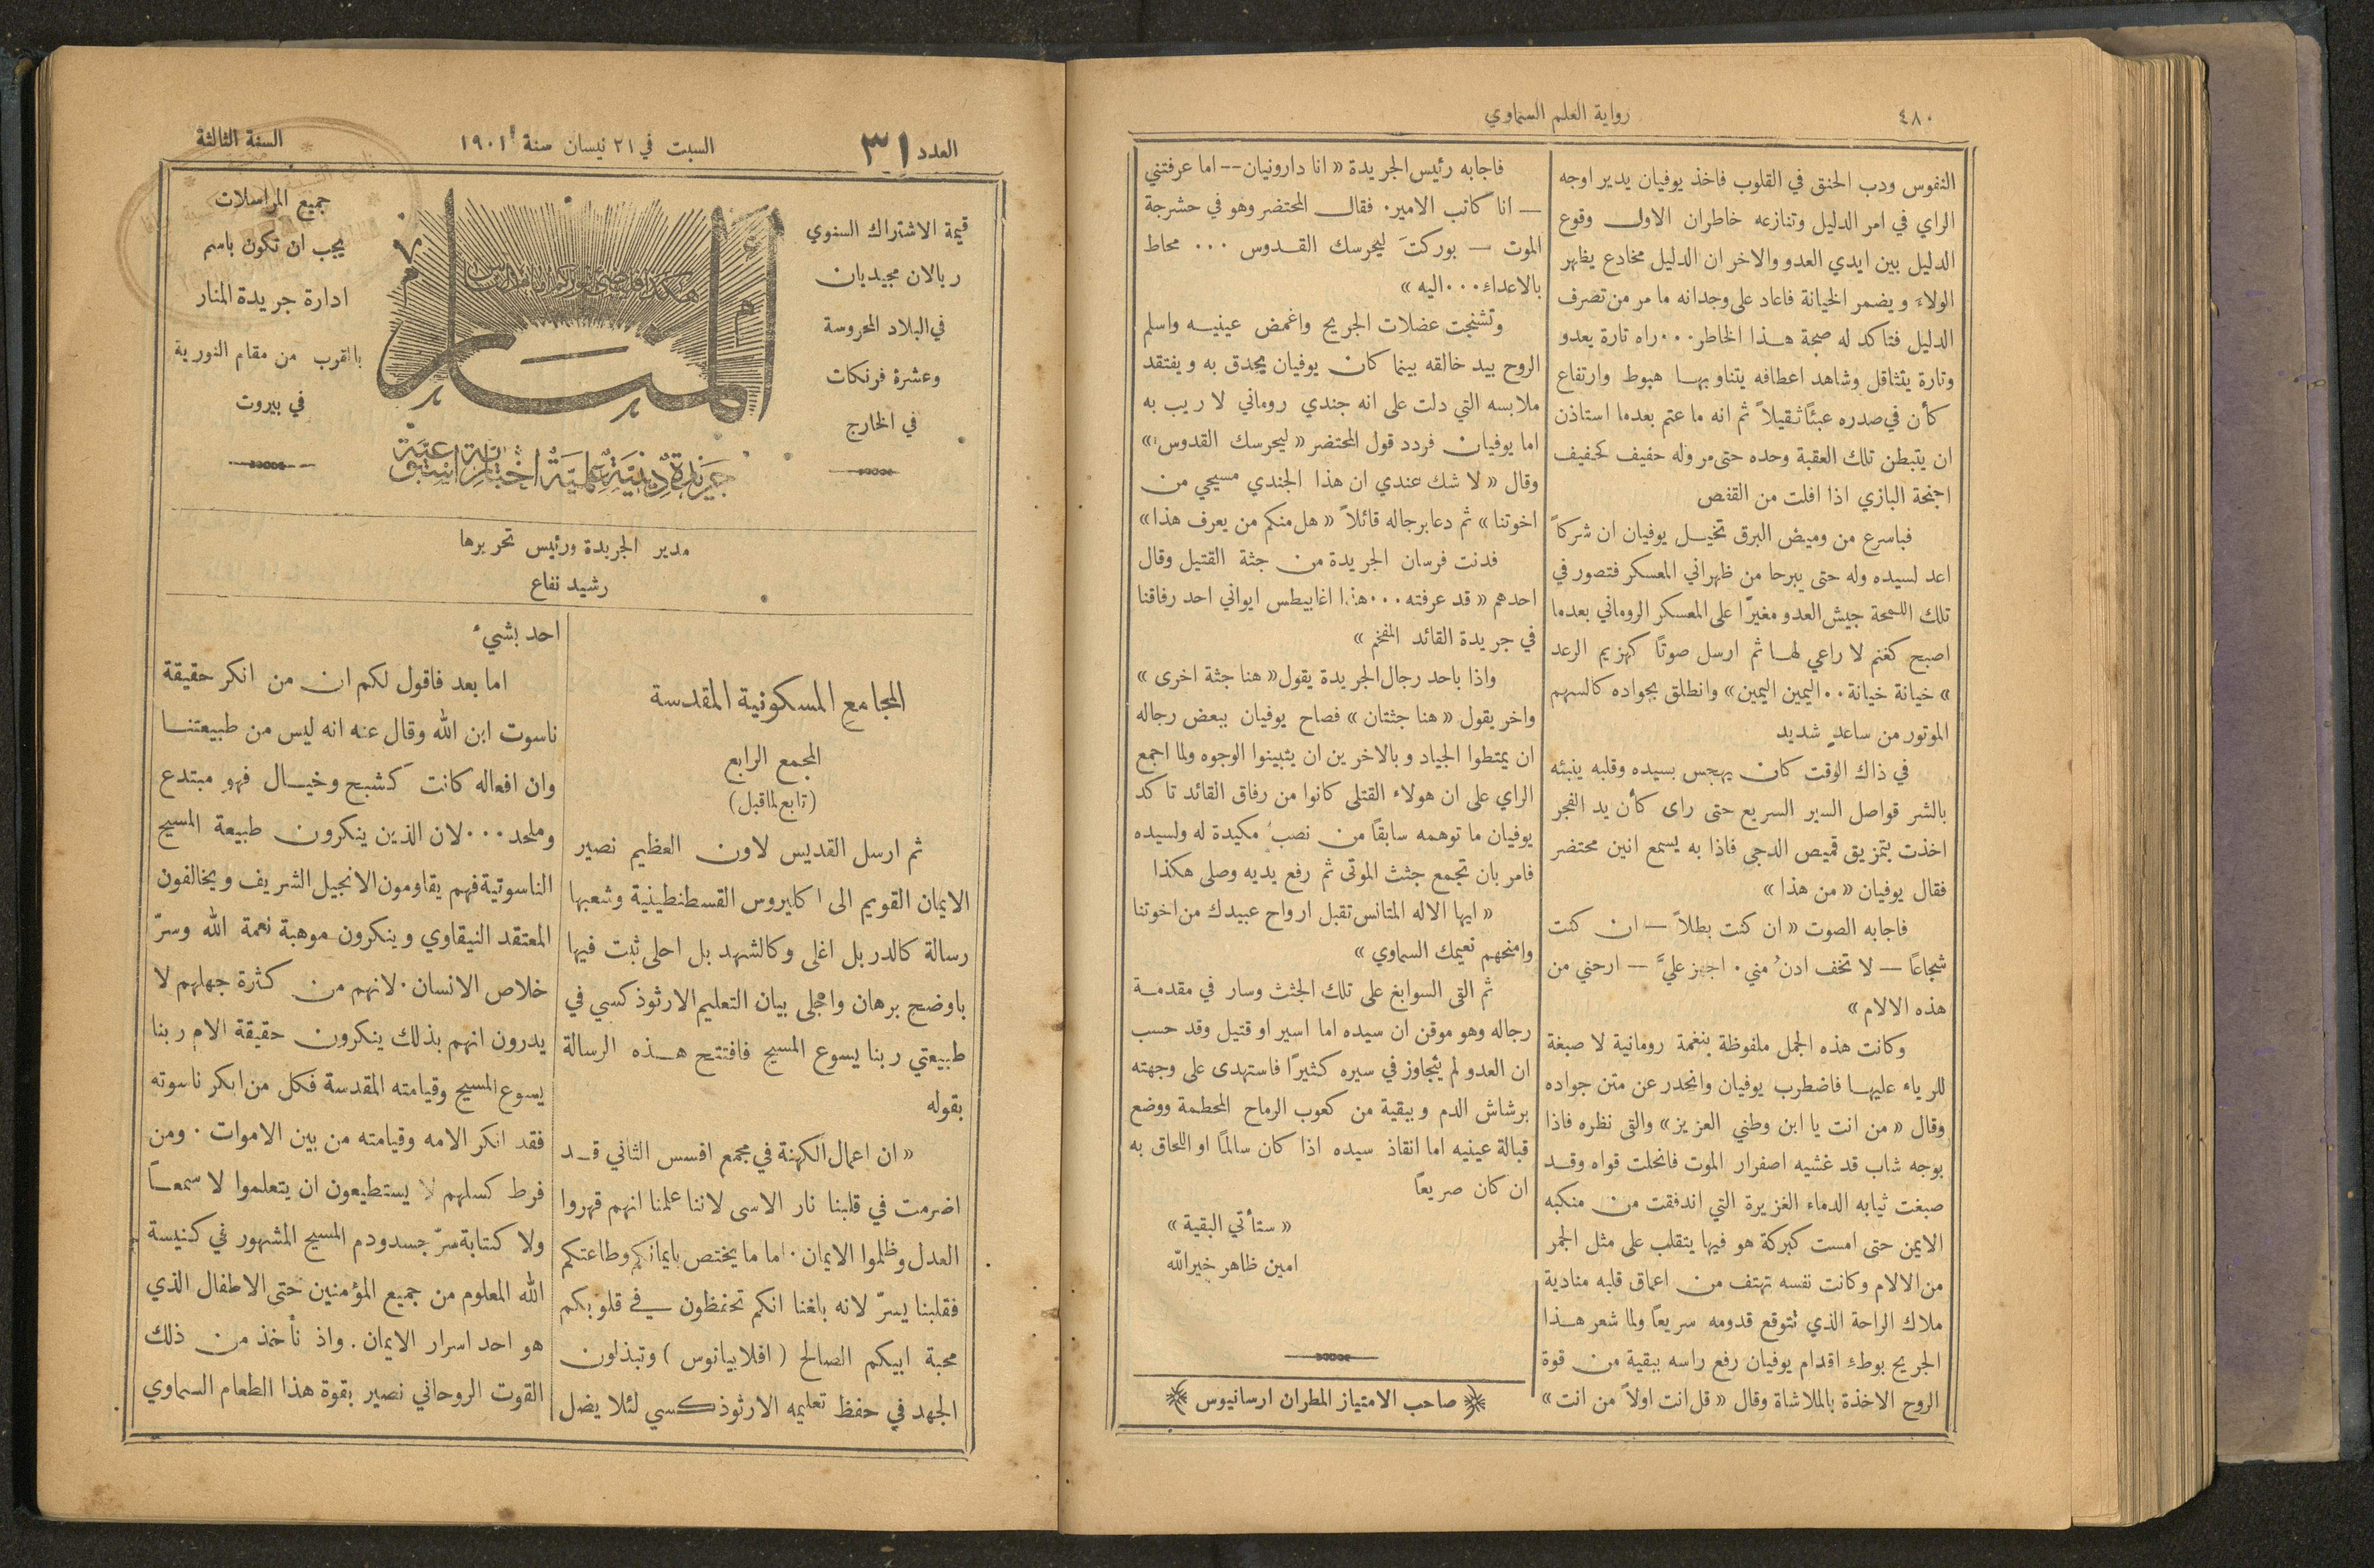 ٤٨٠
رواية العلم السماوي
النفوس ودب الحنق في القلوب فاخذ يوفيان يدير اوجه
الراي في امر الدليل وتنازعه خاطران الاول وقوع
الدليل بين ايدي العدو والاخر ان الدليل مخادع يظهر
الولاء ويضمر الخيانة فاعاد على وجدانه ما مر من تصرف
الدليل فتاكد له صحة هذا الخاطر... راه تارة يعدو
وتارة يتثاقل وشاهد اعطافه يتناوبها هبوط وارتفاع
كأن في صدره عبئًا ثقيلاً ثم انه ما عتم بعدما استاذن
ان يتبطن تلك العقبة وحده حتى مر وله حفيف كحفيف
اجنحة البازي اذا افلت من القفص
فباسرع من وميض البرق تخيل يوفيان ان شركاً
اعد لسيده وله حتى يبرحا من ظهراني المعسكر فتصور في
تلك اللمحة جيش العدو مغيرًا على المعسكر الروماني بعدما
اصبح كغنم لا راعي لها ثم ارسل صوتًا كهزيم الرعد
» خيانة خيانة.. اليمين اليمين» وانطلق بجواده كالسهم
الموتور من ساعدٍ شديد
في ذاك الوقت كان يهجس بسيده وقلبه ينبئه
بالشر قواصل السير السريع حتى راى كأن يد الفجر
اخذت بتمزيق قميص الدجى فاذا به يسمع انين محتضر
فقال يوفيان « من هذا »
فاجابه الصوت « ان كنت بطلاً — ان كنت
شجاعًا — لا تخف ادنُ مني. اجهز عليَّ — ارحني من
هذه الالام »
وكانت هذه الجمل ملفوظة بنغمة رومانية لا صبغة
للرياء عليها فاضطرب يوفيان وانحدر عن متن جواده
وقال « من انت يا ابن وطني العزيز» والقى نظره فاذا
بوجه شاب قد غشيه اصفرار الموت فانحلت قواه وقد
صبغت ثيابه الدماء الغزيرة التي اندفقت من منكبه
الايمن حتى امست كبركة هو فيها يتقلب على مثل الجمر
من الالام وكانت نفسه تهتف من اعماق قلبه منادية
ملاك الراحة الذي تتوقع قدومه سريعًا ولما شعر هذا
الجريح بوطءِ اقدام يوفيان رفع راسه ببقية من قوة
الروح الاخذة بالملاشاة وقال « قل انت اولاً من انت »
فاجابه رئيس الجريدة « انا دارونيان -- اما عرفتني
— انا كاتب الامير. فقال المحتضر وهو في حشرجة
الموت — بوركتَ ليحرسك القدوس ... محاط
بالاعداء... اليه »
وتشنجت عضلات الجريح واغمض عينيه واسلم
الروح بيد خالقه بينما كان يوفيان يحدق به ويفتقد
ملابسه التي دلت على انه جندي روماني لا ريب به
اما يوفيان فردد قول المحتضر « ليحرسك القدوس»
وقال « لا شك عندي ان هذا الجندي مسيحي من
اخوتنا » ثم دعا برجاله قائلاً « هل منكم من يعرف هذا »
فدنت فرسان الجريدة من جثة القتيل وقال
احدهم « قد عرفته... هذا اغابيطس ايواني احد رفاقنا
في جريدة القائد المفخم »
واذا باحد رجال الجريدة يقول « هنا جثة اخرى »
واخر يقول « هنا جثتان » فصاح يوفيان ببعض رجاله
ان يمتطوا الجياد وبالاخرين ان يتبينوا الوجوه ولما اجمع
الراي على ان هولاء القتلى كانوا من رفاق القائد تاكد
يوفيان ما توهمه سابقًا من نصب مكيدة له ولسيده
فامر بان تجمع جثث الموتى ثم رفع يديه وصلى هكذا
« ايها الاله المتانس تقبل ارواح عبيدك من اخوتنا
وامنحهم نعيمك السماوي »
ثم القى السوابغ على تلك الجثث وسار في مقدمة
رجاله وهو موقن ان سيده اما اسير او قتيل وقد حسب
ان العدو لم يتجاوز في سيره كثيرًا فاستهدى على وجهته
برشاش الدم وببقية من كعوب الرماح المحطمة ووضع
قبالة عينيه اما انقاذ سيده اذا كان سالمًا او اللحاق به
ان كان صريعًا
« ستأتي البقية »
امين ظاهر خيرالله
صاحب الامتياز المطران ارسانيوس
العدد ٣١
السبت في ٢١ نيسان سنة ١٩٠١
السنة الثالثة
قيمة الاشتراك السنوي
ريالان مجيديان
في البلاد المحروسة
وعشرة فرنكات
في الخارج
هكذا فليضئ نوركم امام الناس
المنار
جريدة دينية علمية اخبارية اسبوعية
جميع المراسلات
يجب ان تكون باسم
ادارة جريدة المنار
بالقرب من مقام النورية
في بيروت
مدير الجريدة ورئيس تحريرها
رشيد نفاع
المجامع المسكونية المقدسة
المجمع الرابع
(تابع لما قبل)
ثم ارسل القديس لاون العظيم نصير
الايمان القويم الى اكليروس القسطنطينية وشعبها
رسالة كالدر بل اغلى وكالشهد بل احلى ثبت فيها
باوضح برهان واجلى بيان التعليم الارثوذكسي في
طبيعتي ربنا يسوع المسيح فافتتح هذه الرسالة
بقوله
« ان اعمال الكهنة في مجمع افسس الثاني قد
اضرمت في قلبنا نار الاسى لاننا علمنا انهم قهروا
العدل وظلموا الايمان. اما ما يختص بايمانكم وطاعتكم
فقلبنا يسرّ لانه بلغنا انكم تحفظون في قلوبكم
محبة ابيكم الصالح ( افلابيانوس ) وتبذلون
الجهد في حفظ تعليمه الارثوذكسي لئلا يضل
احد بشيء
اما بعد فاقول لكم ان من انكر حقيقة
ناسوت ابن الله وقال عنه انه ليس من طبيعتنا
وان افعاله كانت كشبح وخيال فهو مبتدع
وملحد... لان الذين ينكرون طبيعة المسيح
الناسوتية فهم يقاومون الانجيل الشريف ويخالفون
المعتقد النيقاوي وينكرون موهبة نعمة الله وسرّ
خلاص الانسان. لانهم من كثرة جهلهم لا
يدرون انهم بذلك ينكرون حقيقة الام ربنا
يسوع المسيح وقيامته المقدسة فكل من انكر ناسوته
فقد انكر الامه وقيامته من بين الاموات. ومن
فرط كسلهم لا يستطيعون ان يتعلموا لا سمعاً
ولا كتابة سرّ جسد ودم المسيح المشهور في كنيسة
الله المعلوم من جميع المؤمنين حتى الاطفال الذي
هو احد اسرار الايمان. واذ نأخذ من ذلك
القوت الروحاني نصير بقوة هذا الطعام السماوي